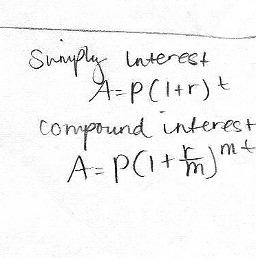 Simply interest
A=P(1+r)^t
compound interest
A=P(1+r/m)^mt